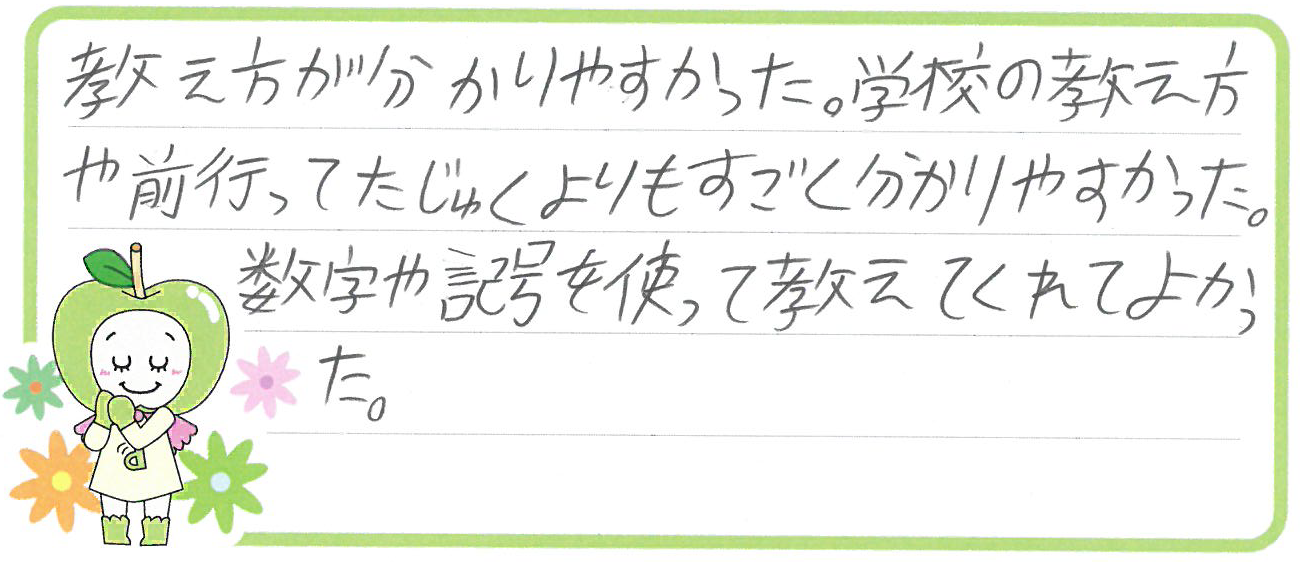 教え方が分かりやすかった。学校の教え方
や前行ってたじゅくよりもすごく分かりやすかった。
数字や記号を使って教えてくれてよかっ
た。